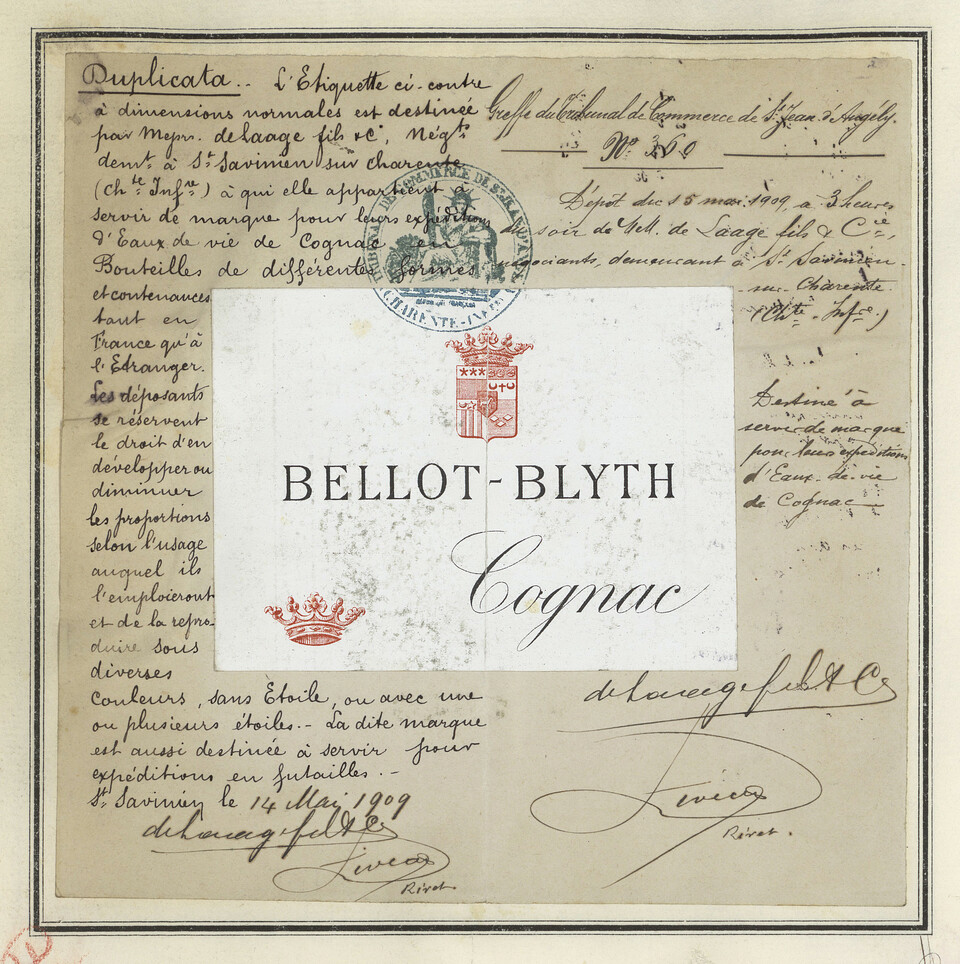 Duplicata.. L'Etiquette ci-contre
à dimensions normales est destinée
par Meprs. de Laage fils & Cie, Négts
demt à St Savinien sur Charente
(Chte Infre) à qui elle appartient à
servir de marque pour leurs expéditions
d'Eaux de vie de Cognac en
Bouteilles de différentes formes
et contenances
tant en
France qu'à
l'Etranger.
Les déposants
se réservent
le droit d'en
développer ou
diminuer
les proportions
selon l'usage
auquel ils
l'emploieront
et de la repro-
duire sous
diverses
couleurs, sans Etoile, ou avec une
ou plusieurs étoiles.- La dite marque
est aussi destinée à servir pour
expéditions en futailles.-
St Savinien le 14 Mai 1909
de Laage fils & Cie
Rivet.
Greffe du Tribunal de Commerce de St Jean d'Angély.
No 360
Dépôt du 15 mai 1909, à 3 heures
du soir de MM. de Laage fils & Cie,
négociants, demeurant à St Savinien-
sur Charente
(Chte Infre)
Destiné à
servir de marque
pour leurs expéditions
d'Eaux-de-vie
de Cognac
de Laage fils & Cie
Rivet.
TRIBUNAL DE COMMERCE DE ST JEAN D'ANGELY
CHARENTE-INFRE
BELLOT-BLYTH
Cognac